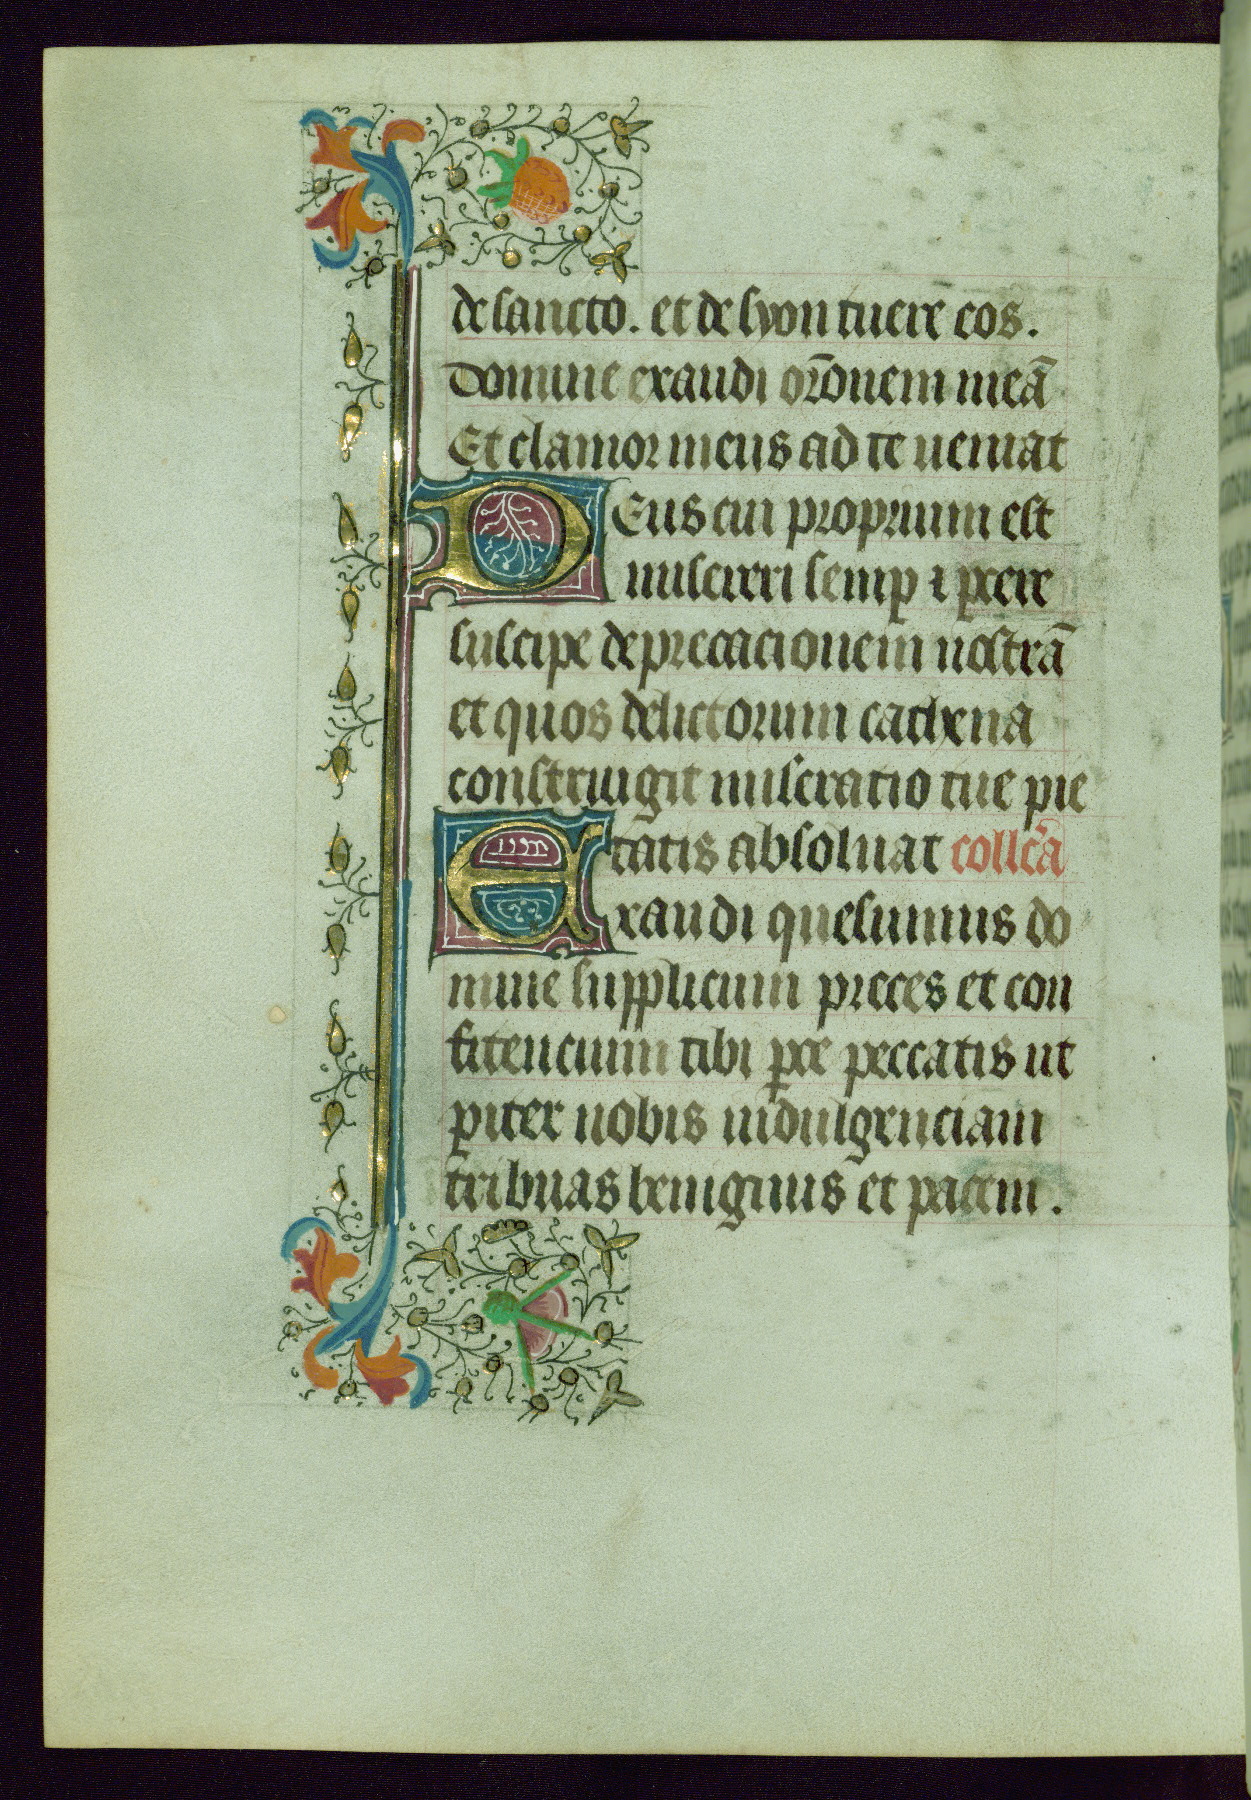 de sancto. et de syon tuere eos.
Domine exaudi or̅onem mea̅
Et clamor meus ad te ueniat
Deus cui proprium est
misereri semꝑ ⁊ ꝑcere
suscipe deprecacionem nostra̅
et quos delictorum cathena
constringit miseratio tue pie
tatis absoluat collc̅a
Exaudi quesumus do
mine supplicum preces et con
fitencium tibi ꝑce peccatis ut
ꝑiter nobis indulgenciam
tribuas benignus et pacem.